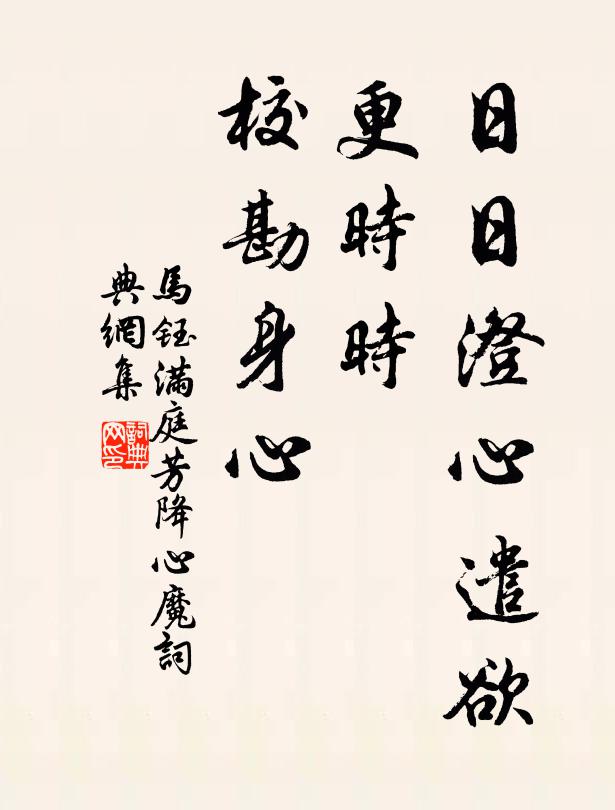 日日澄心遣欲
更時時
校勘身心
馬鈺满庭芳降心魔詞
典網集
詞典网印